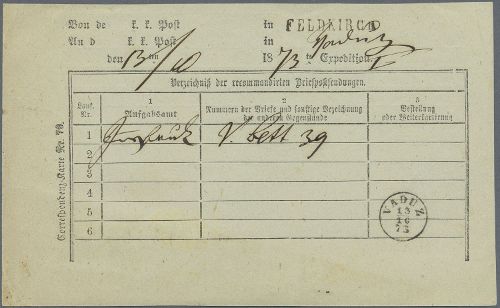 Von de k. k. Post in FELDKIRCH
An d k. k. Post in Vaduz
den 13/10 1873 ten Expedition I
Verzeichniß der recommandirten Briefpostsendungen.
Lauf. Nr.
1
Aufgabsamt
2
Nummern der Briefe und sonstige Bezeichnung der anderen Gegenstände
3
Bestellung oder Weiterkartirung
1 V. bett 39
2
3
4
5
6
VADUZ
13
10
73
Correspondenz-Karte Nr. 70.